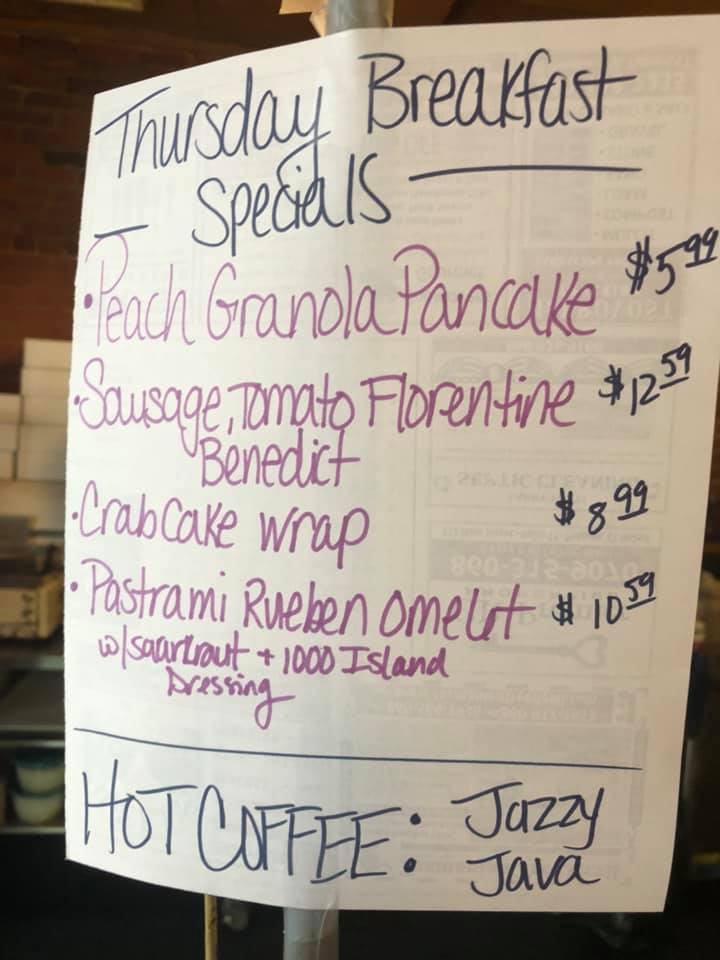 Thursday Breakfast
Specials
• Peach Granola Pancake $5.99
• Sausage, Tomato Florentine $12.59
Benedict
• Crab Cake wrap $8.99
• Pastrami Rueben omelet $10.59
w/saurkraut + 1000 Island
Dressing
HOT COFFEE: Jazzy
Java